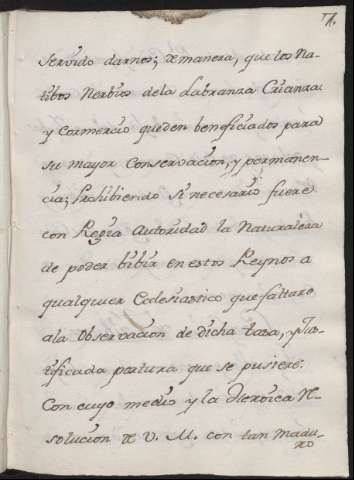 servido darnos; de manera, que los Na-
tibos Nerbios dela Labranza Crianza
y Comercio queden beneficiados para
su mayor Conservacion, y permanen-
cia; Prohibiendo si necesario fuere
con Regia Autoridad la Naturaleza
de poder bibir en estos Reynos a
qualquier Eclesiastico que faltare
ala Observacion de dicha tasa, y Jus-
tificada postura que se pusiere:
Con cuyo medio y la Heroica Re-
solucion de V. M. con tan Madu-
ro